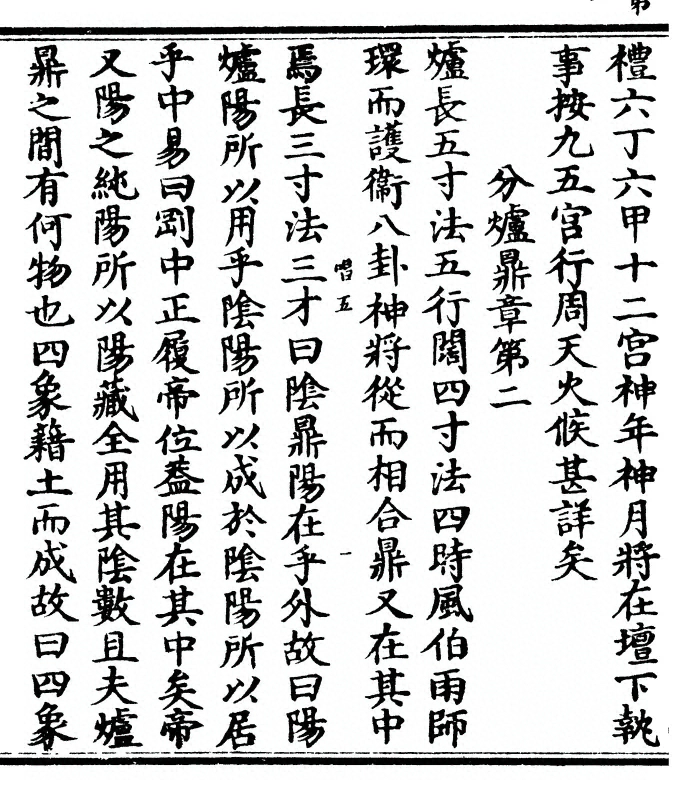 第
禮六丁六甲十二宮神年神月將在壇下執
事按九五宮行周天火候甚詳矣
分爐鼎章第二
爐長五寸法五行闊四寸法四時風伯雨師
環而護衞八卦神將從而相合鼎又在其中
唱五
焉長三寸法三才曰陰鼎陽在乎外故曰陽
爐陽所以用乎陰陽所以成於陰陽所以居
乎中易曰剛中正履帝位葢陽在其中矣帝
又陽之純陽所以陽藏全用其陰數且夫爐
鼎之間有何物也四象籍土而成故曰四象